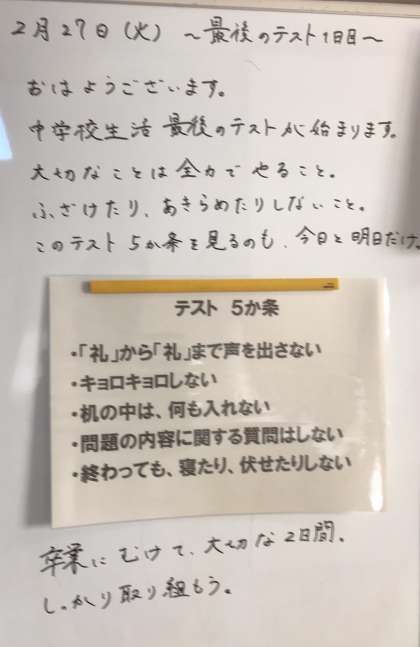 2月27日(火) 〜最後のテスト1日目〜
おはようございます。
中学校生活 最後のテストが始まります。
大切なことは全力でやること。
ふざけたり、あきらめたりしないこと。
このテスト 5か条を見るのも、今日と明日だけ。
テスト 5か条
・「礼」から「礼」まで声を出さない
・キョロキョロしない
・机の中は、何も入れない
・問題の内容に関する質問はしない
・終わっても、寝たり、伏せたりしない
卒業にむけて、大切な2日間。
しっかり取り組もう。